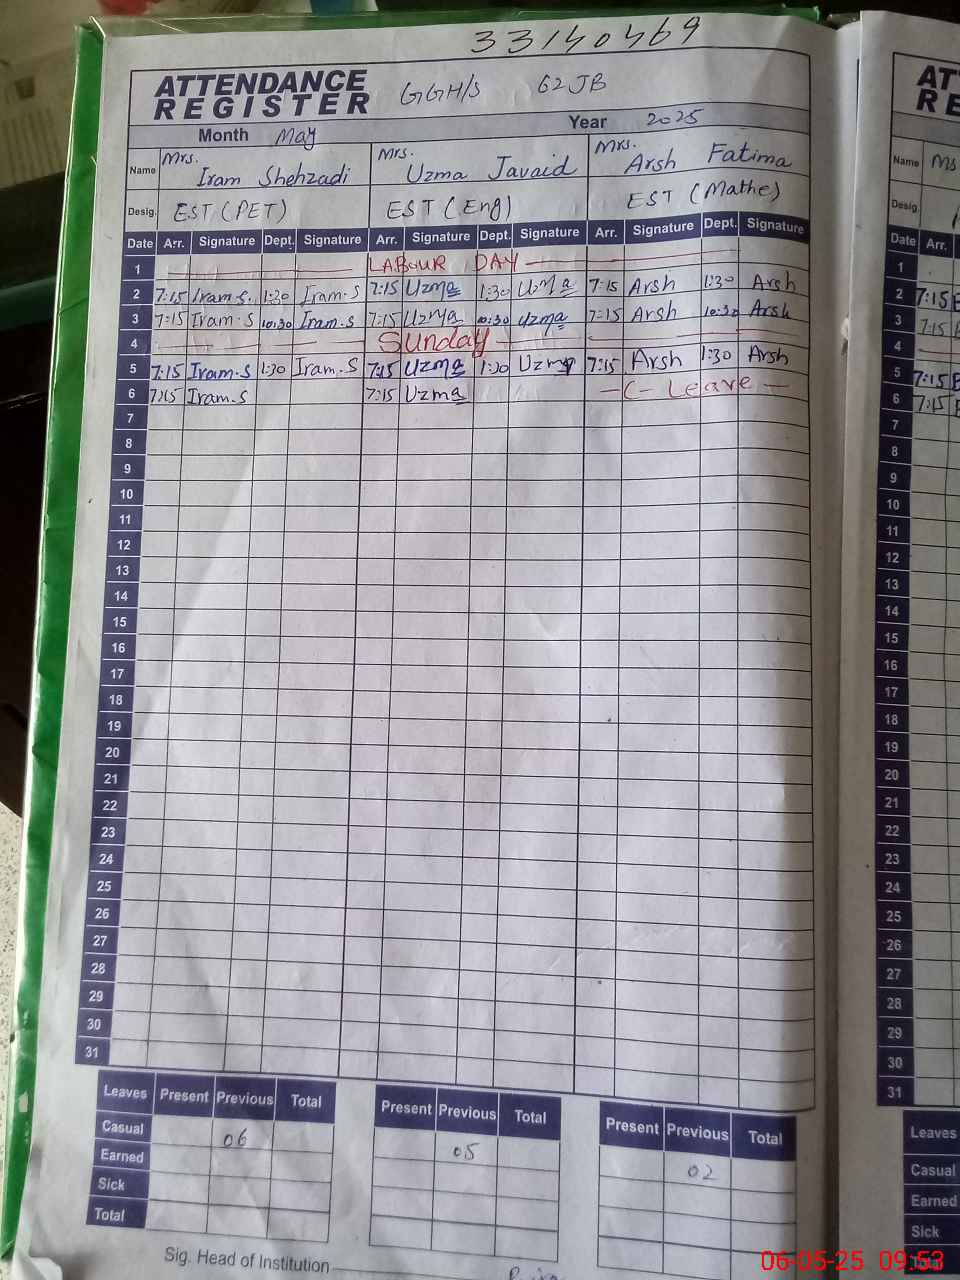 33140469
ATTENDANCE REGISTER GGH/S 62JB
Month May Year 2025
Name Mrs. Iram Shehzadi Mrs. Uzma Javaid Mrs. Arsh Fatima
Desig. EST (PET) EST (Eng) EST (Mathe)
Date Arr. Signature Dept. Signature Arr. Signature Dept. Signature Arr. Signature Dept. Signature
1 LABOUR DAY
2 7:15 Iram.S. 1:30 Iram.S 7:15 Uzma 1:30 Uzma 7:15 Arsh 1:30 Arsh
3 7:15 Iram.S 10:30 Iram.S 7:15 Uzma 10:30 Uzma 7:15 Arsh 10:30 Arsh
4 Sunday
5 7:15 Iram.S 1:30 Iram.S 7:15 Uzma 1:30 Uzma 7:15 Arsh 1:30 Arsh
6 7:15 Iram.S 7:15 Uzma -C- Leave -
7
8
9
10
11
12
13
14
15
16
17
18
19
20
21
22
23
24
25
26
27
28
29
30
31
Leaves Present Previous Total Present Previous Total Present Previous Total
Casual 06 05 02
Earned
Sick
Total
Sig. Head of Institution
Name Ms
Desig.
Date Arr.
1
2 7:15
3 7:15
4
5 7:15
6 7:15
7
8
9
10
11
12
13
14
15
16
17
18
19
20
21
22
23
24
25
26
27
28
29
30
31
Leaves
Casual
Earned
Sick
Total
06-05-25 09:53